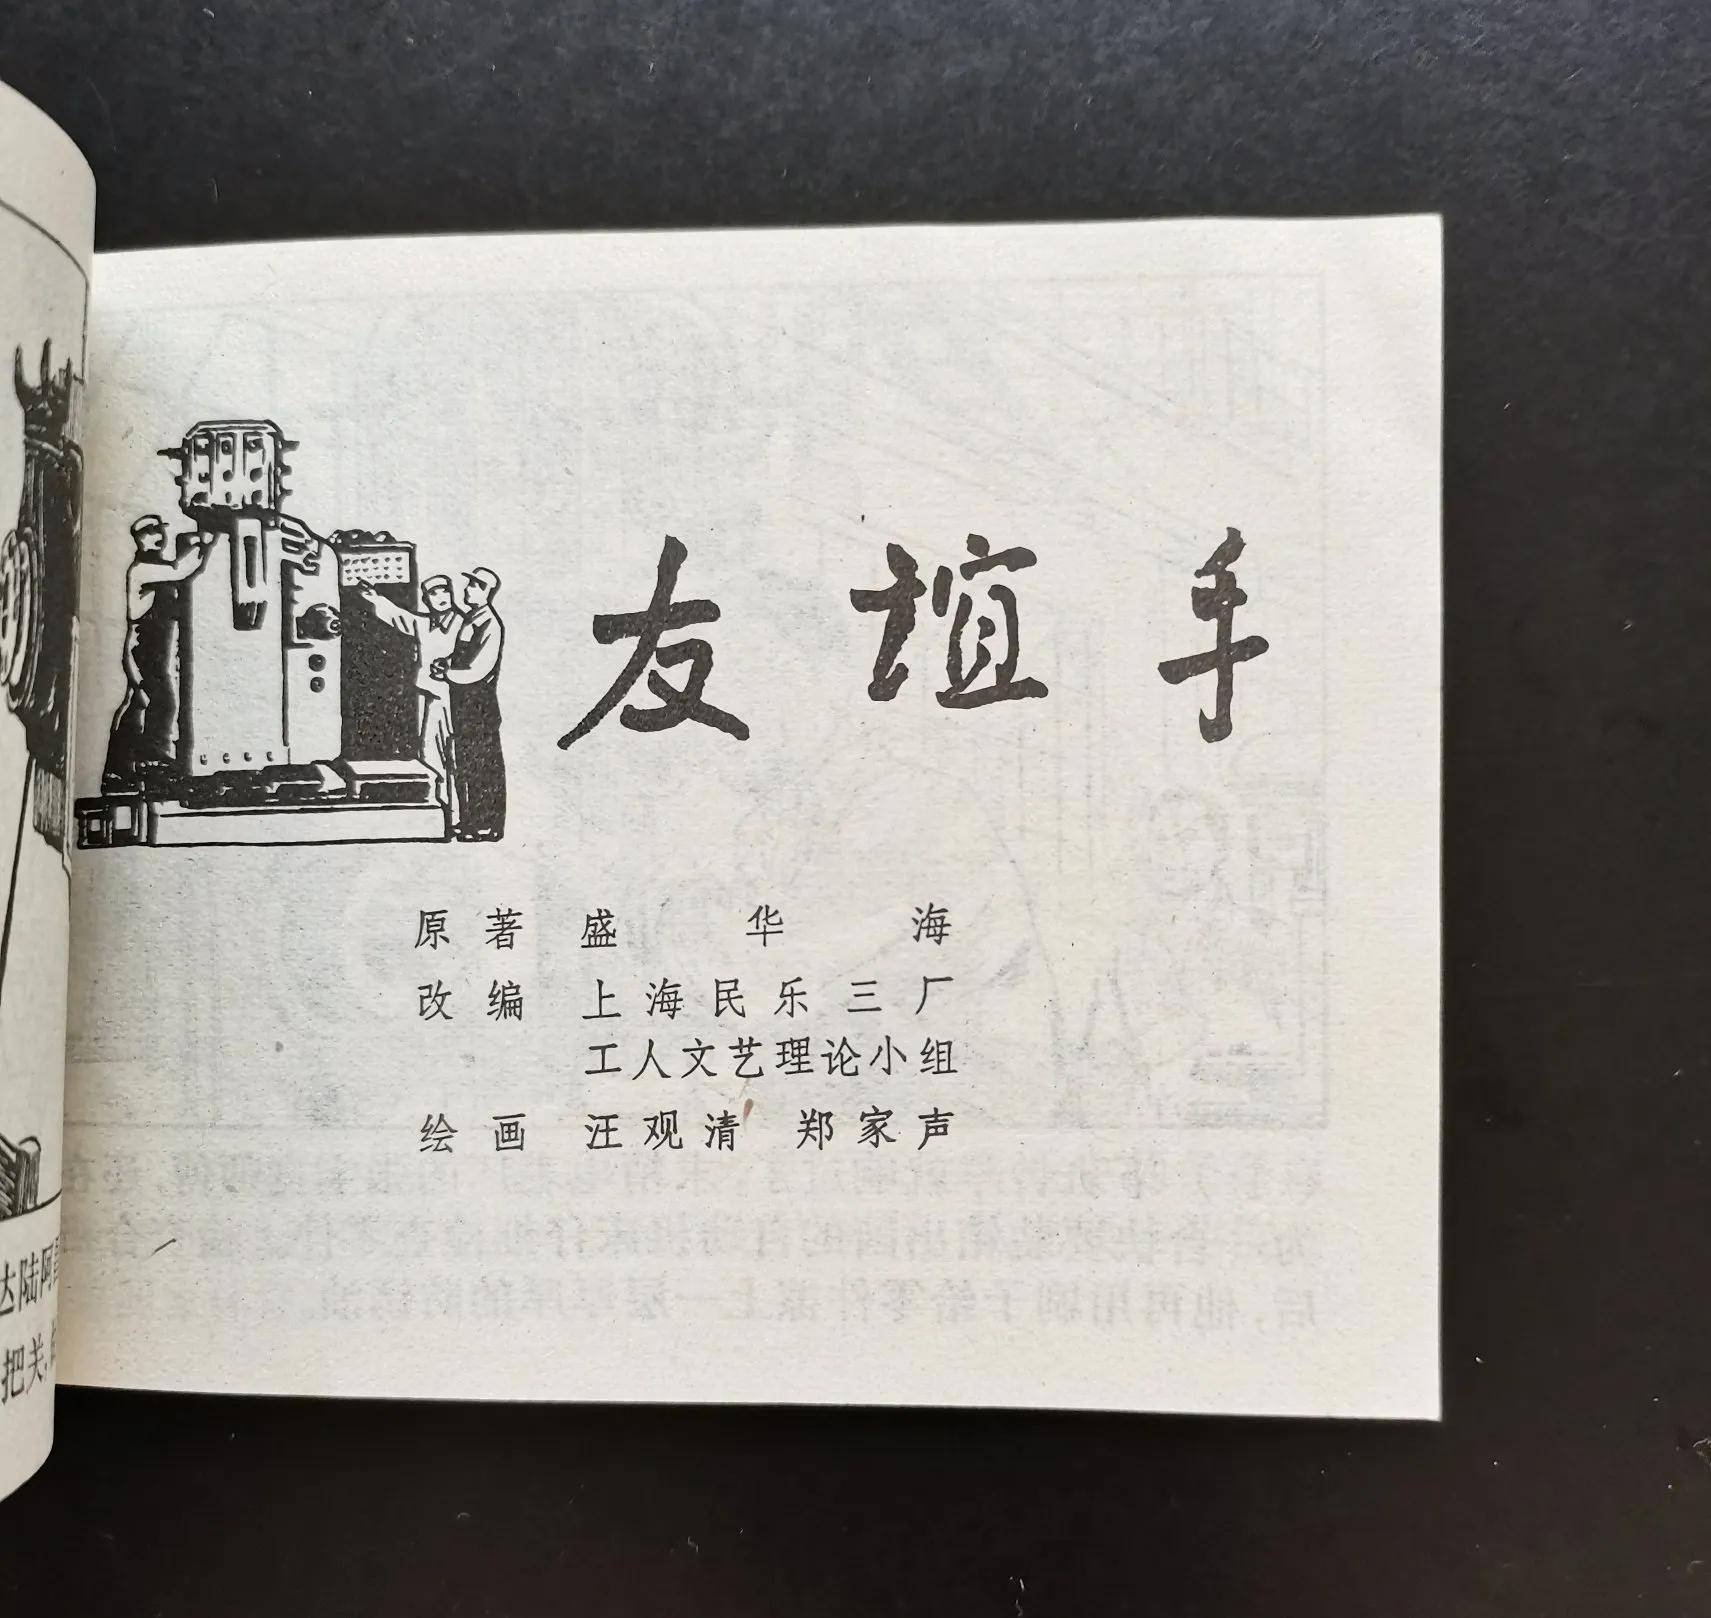 友谊手
原著 盛华海
改编 上海民乐三厂
工人文艺理论小组
绘画 汪观清 郑家声
达陆阿
把关,